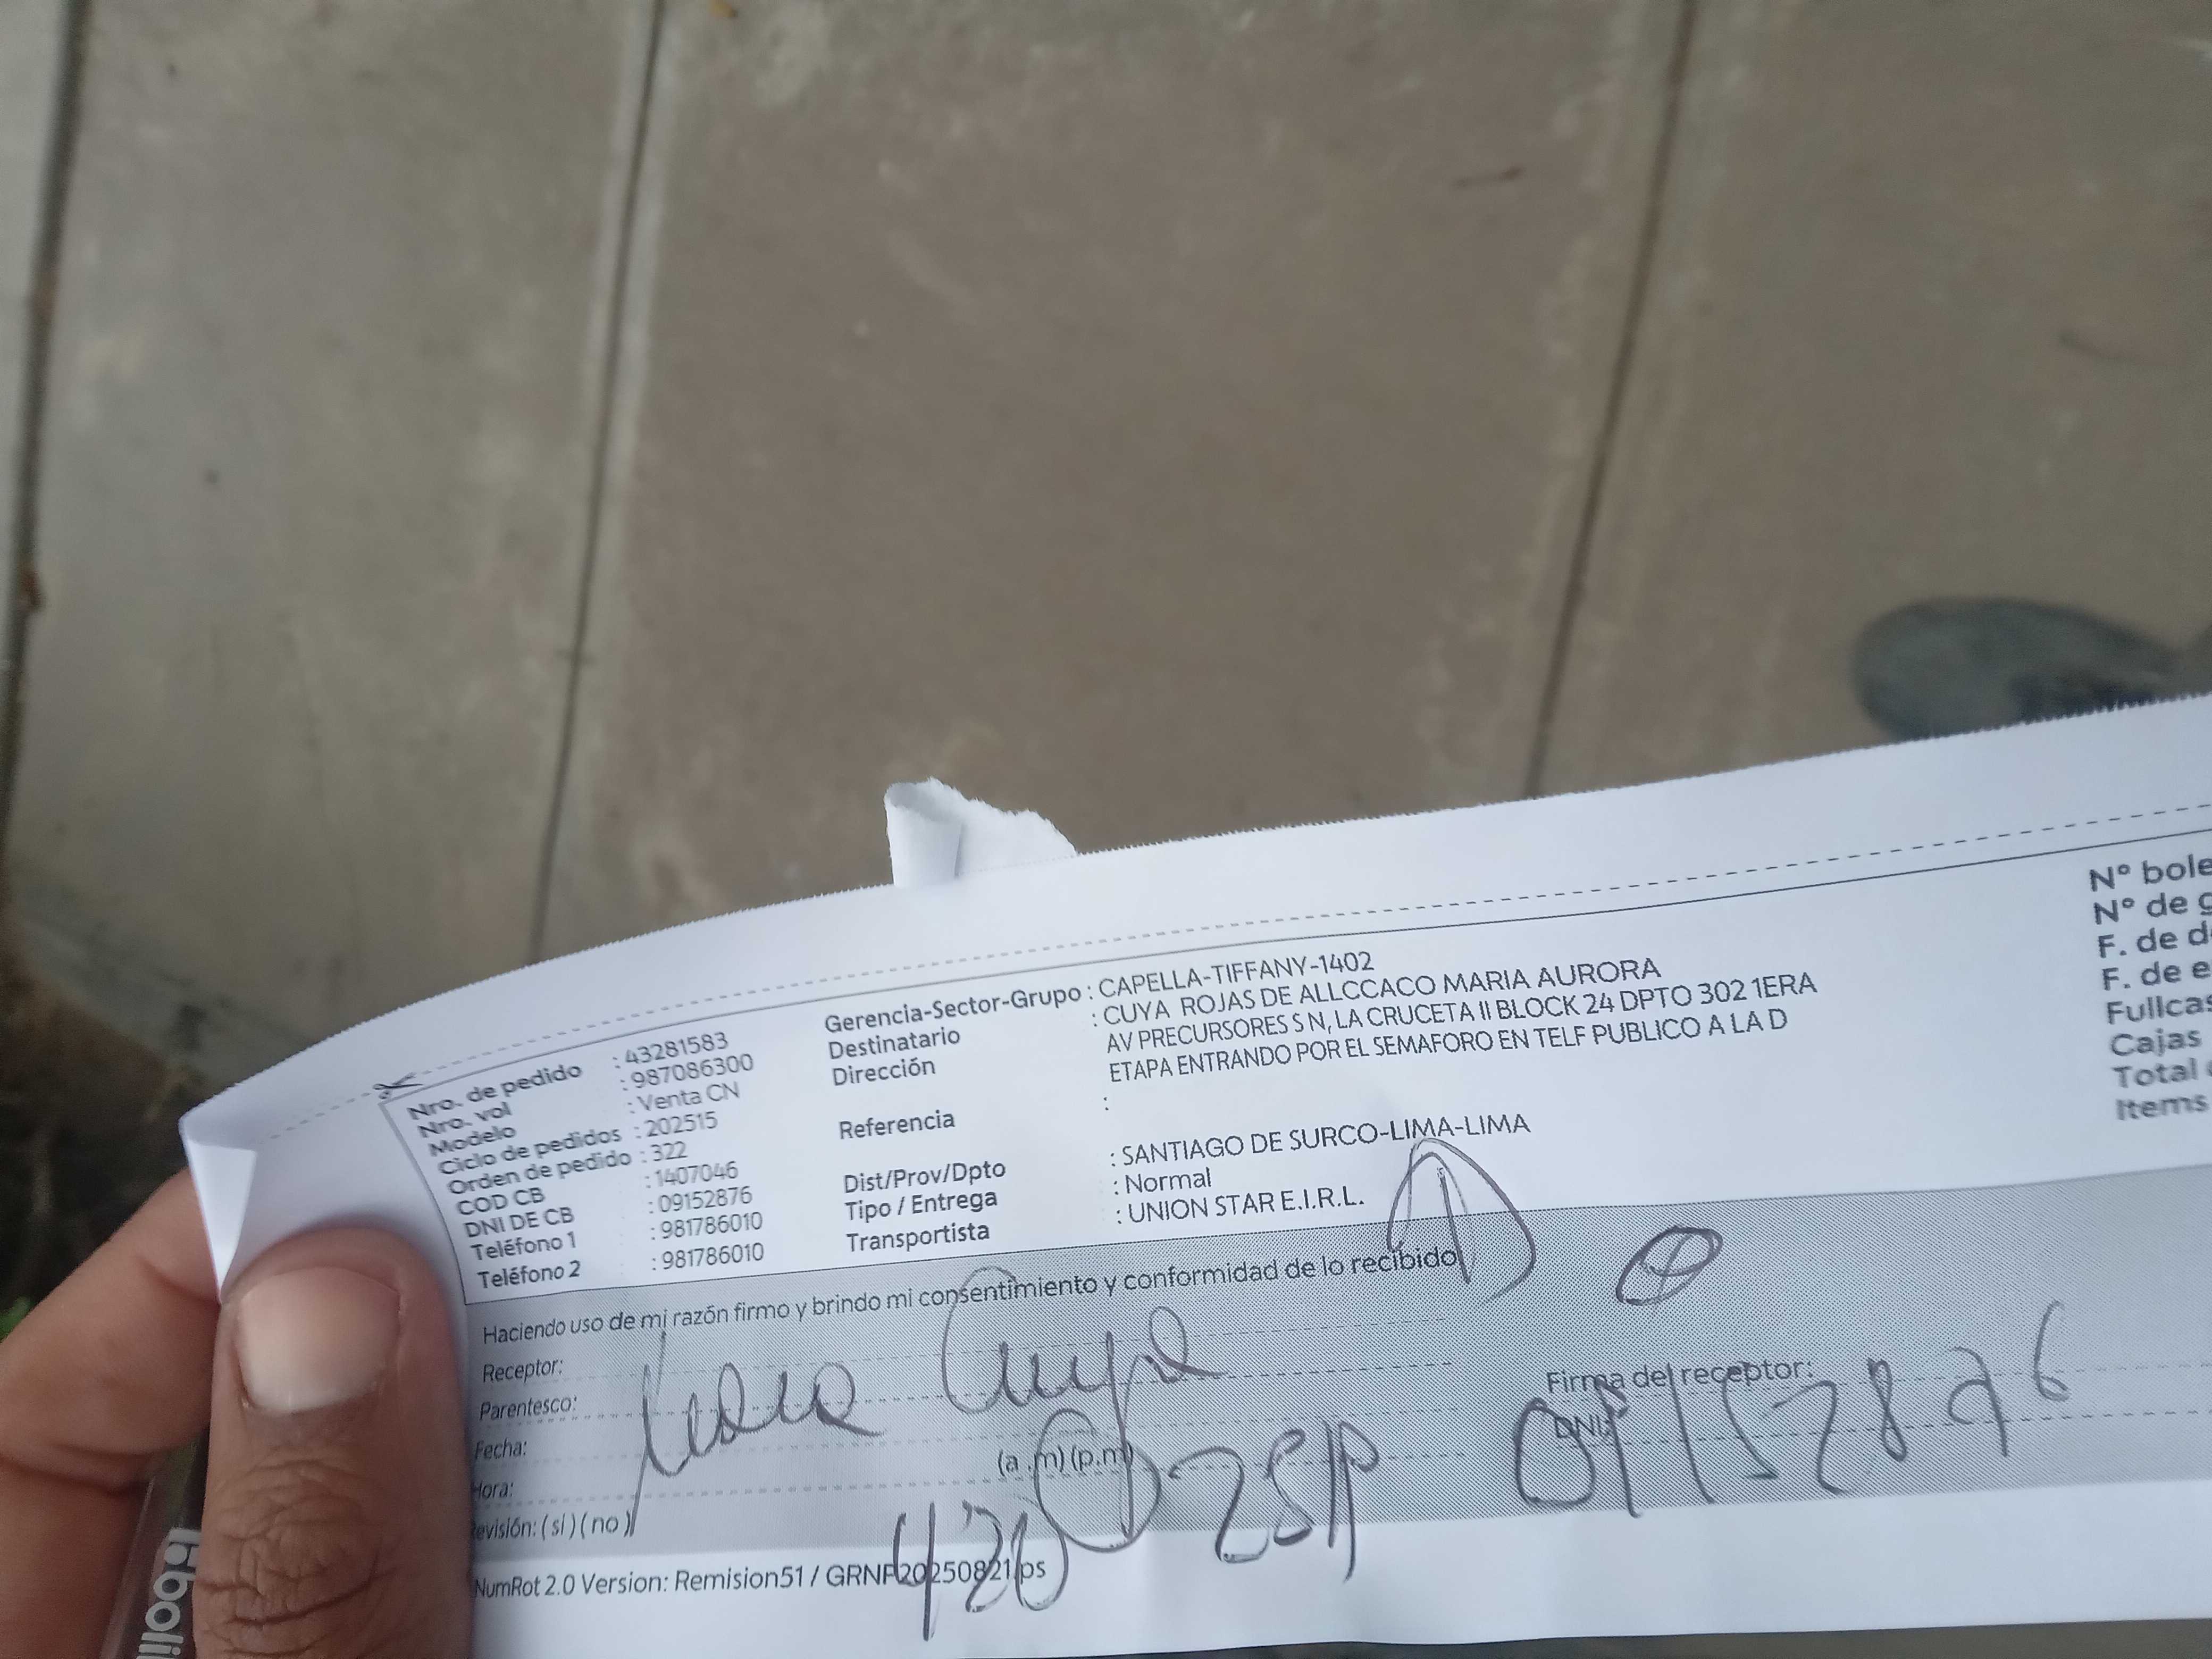 Nro. de pedido : 43281583
Nro. vol : 987086300
Modelo : Venta CN
Ciclo de pedidos : 202515
Orden de pedido : 322
COD CB : 1407046
DNI DE CB : 09152876
Teléfono 1 : 981786010
Teléfono 2 : 981786010
Gerencia-Sector-Grupo : CAPELLA-TIFFANY-1402
Destinatario : CUYA ROJAS DE ALLCCACO MARIA AURORA
Dirección AV PRECURSORES S N, LA CRUCETA II BLOCK 24 DPTO 302 1ERA
ETAPA ENTRANDO POR EL SEMAFORO EN TELF PUBLICO A LA D
Referencia :
Dist/Prov/Dpto : SANTIAGO DE SURCO-LIMA-LIMA
Tipo / Entrega : Normal
Transportista : UNION STAR E.I.R.L.
N° bole
N° de g
F. de d
F. de e
Fullcas
Cajas
Total
Items
Haciendo uso de mi razón firmo y brindo mi consentimiento y conformidad de lo recibido
Receptor:
Parentesco: Cuya
Fecha:
Hora: (a .m) (p.m)
evisión: ( si ) ( no )
Firma del receptor:
DNI: 09152876
NumRot 2.0 Version: Remision51 / GRNP20250821.ps